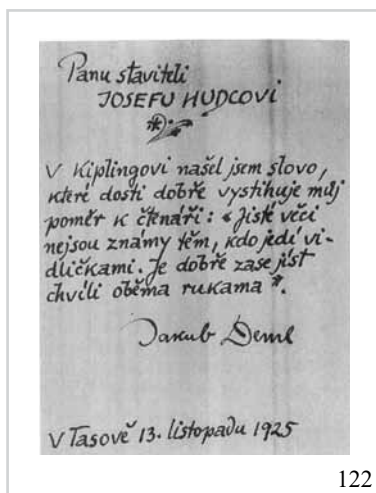 Panu staviteli
JOSEFU HUDCOVI
V Kiplingovi našel jsem slovo,
které dosti dobře vystihuje můj
poměr k čtenáři: « Jisté věci
nejsou známy těm, kdo jedí vi-
dličkami. Je dobře zase jíst
chvíli oběma rukama ».
Jakub Deml
V Tasově 13. listopadu 1925
122